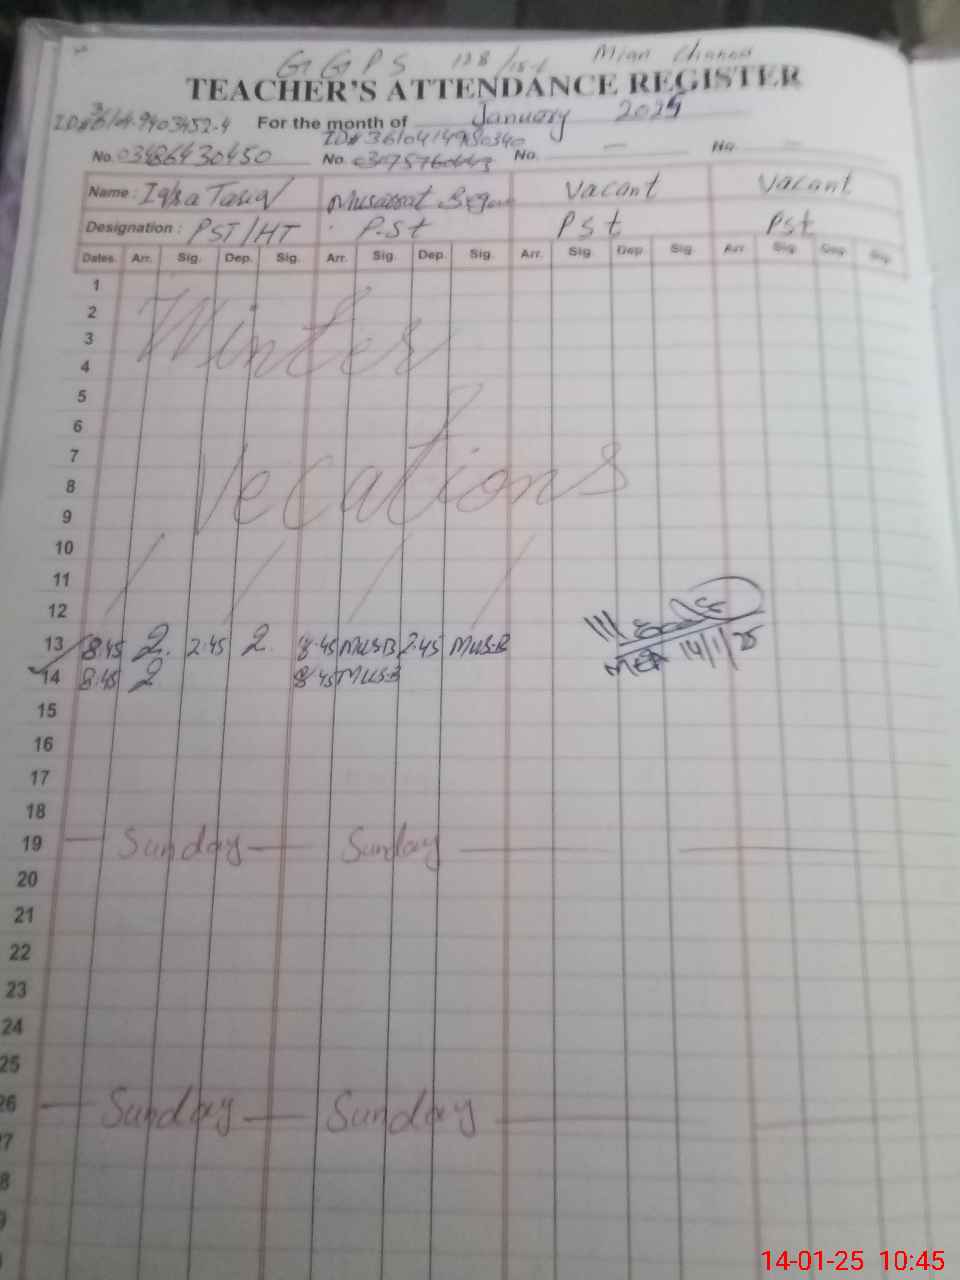 G G P S 128/15-L Mian Channu
TEACHER'S ATTENDANCE REGISTER
For the month of January 2025
No. 03486430450 No. No. — No. —
Name: Iqra Tariq Musarrat Begum Vacant Vacant
Designation: PST/HT P.St PSt PSt
Dates. Arr. Sig. Dep. Sig. Arr. Sig. Dep. Sig. Arr. Sig. Dep Sig. Arr Sig. Dep Sig
1
2
Winter
3
4
5
6
7
Vecations
8
9
10
11
12
13 8:45 2:45 8:45 MUS-B 2:45 MUS-B
MEA 14/1/25
14 8:45 8:45 MUS-B
15
16
17
18
19 — Sunday — Sunday —
20
21
22
23
24
25
26 — Sunday — Sunday —
7
8
9
14-01-25 10:45